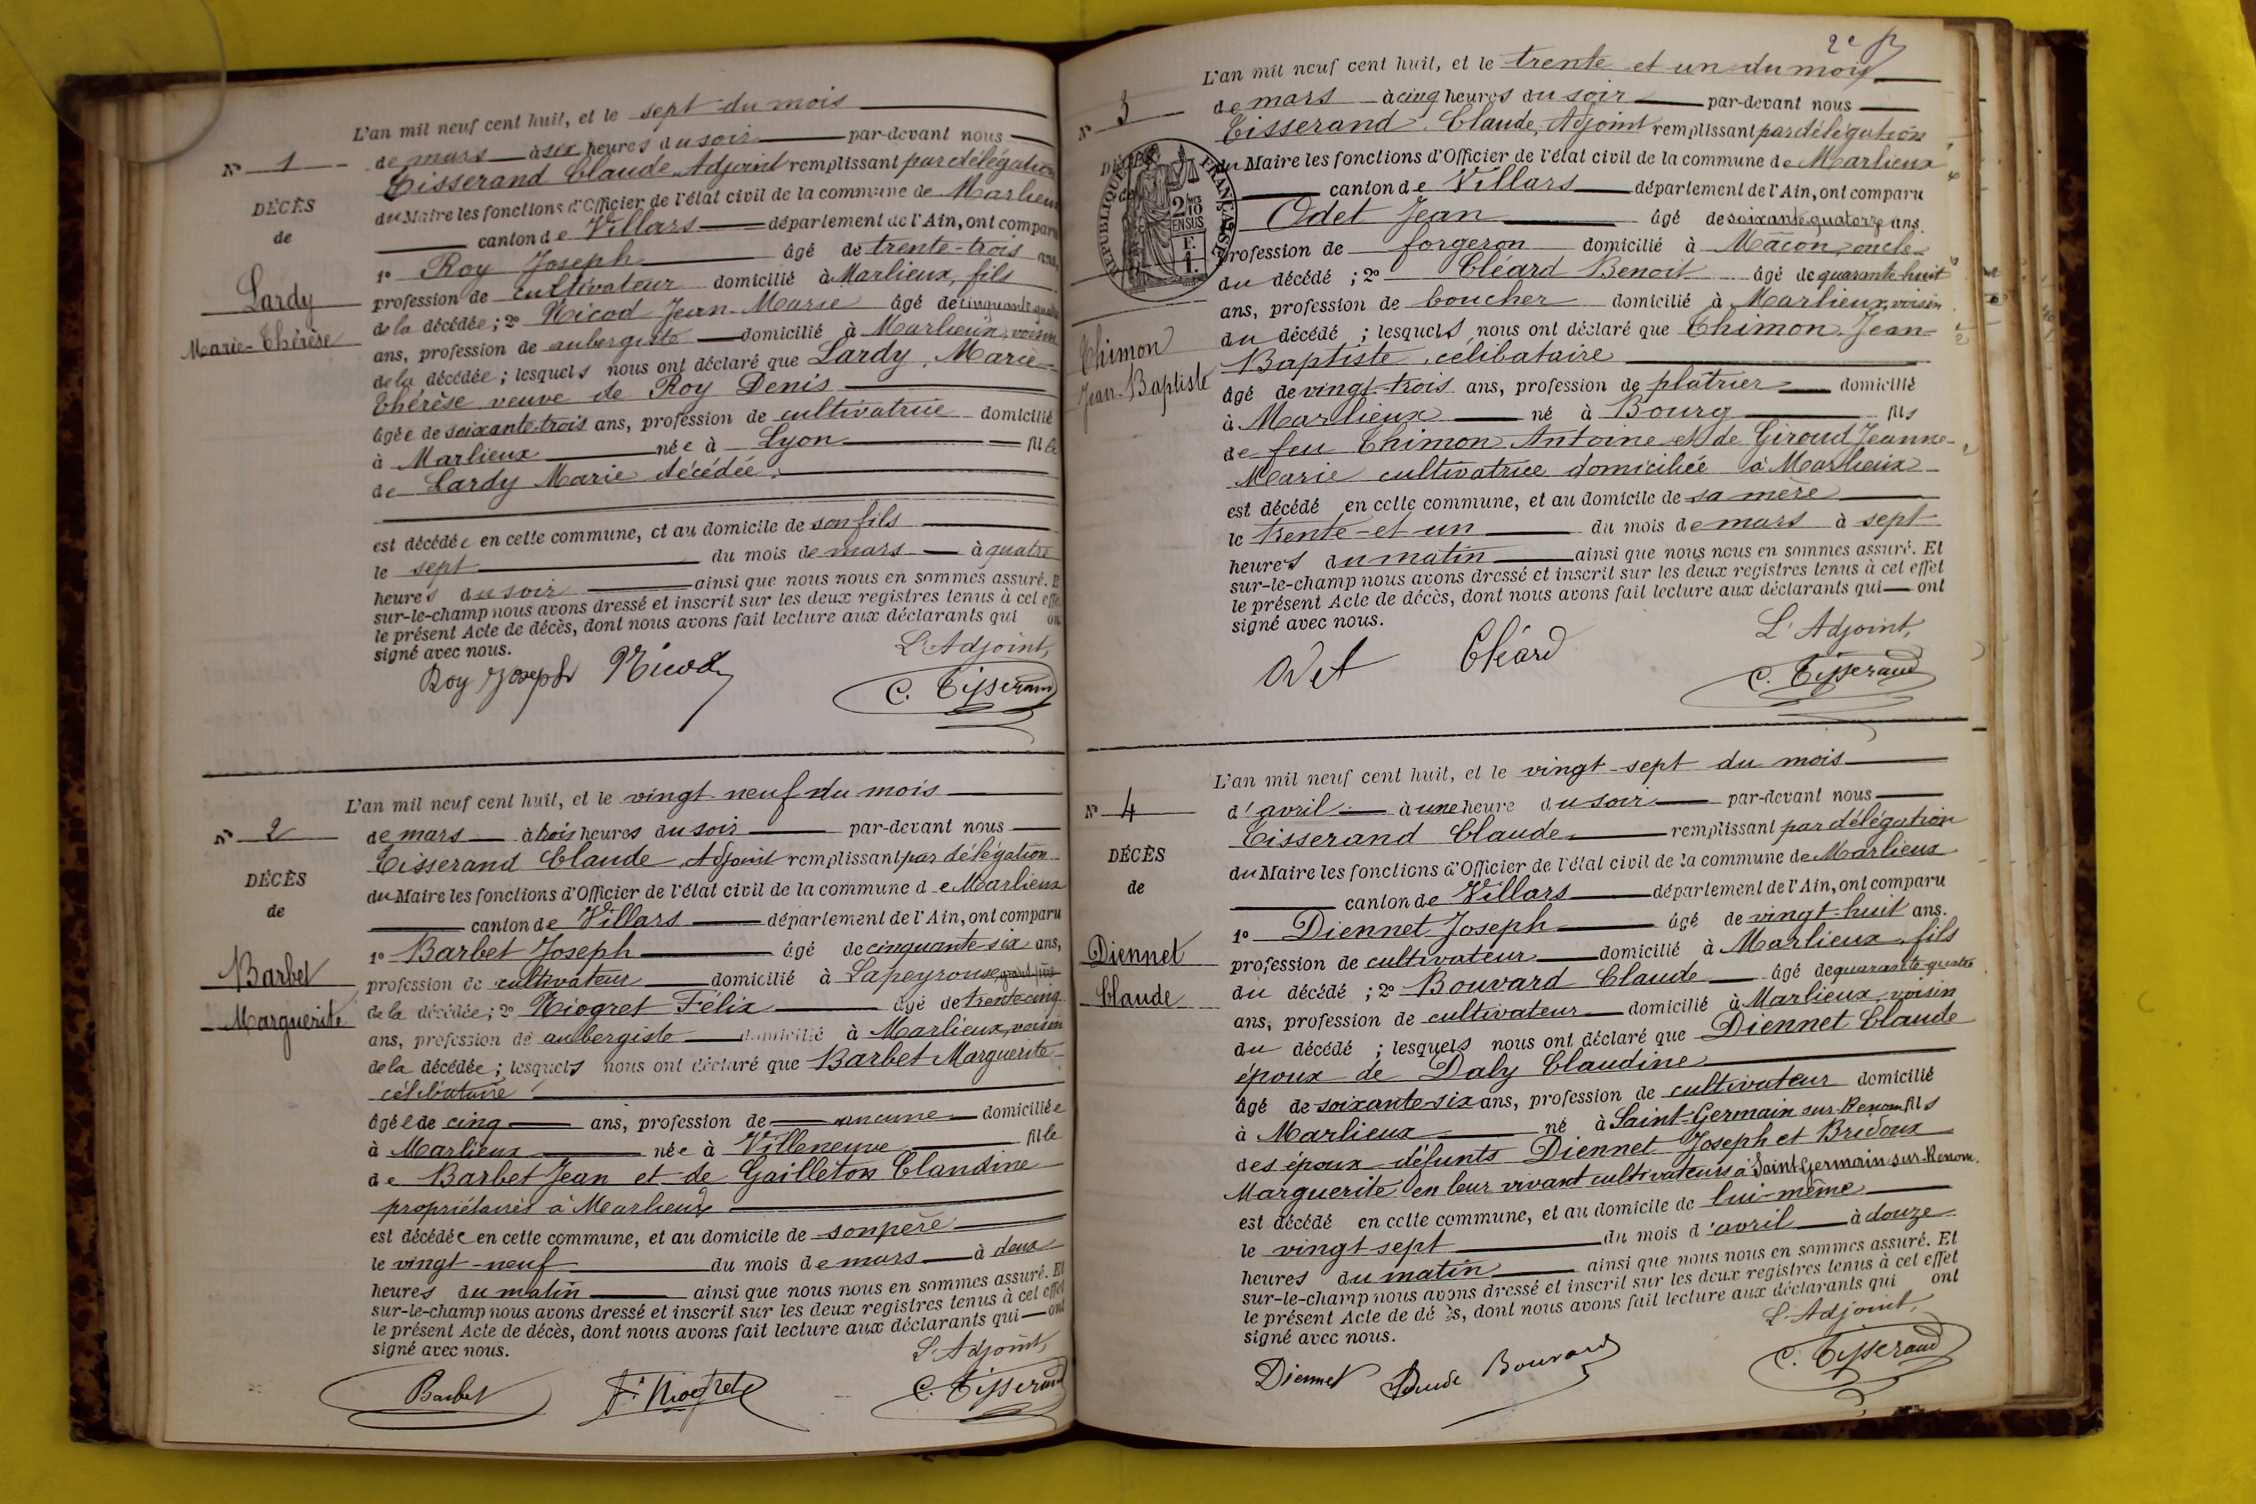 L'an mil neuf cent huit, et le sept du mois
N° 1
de mars à six heures du soir par-devant nous
Tisserand Claude, Adjoint remplissant par délégation
DÉCÈS
du Maire les fonctions d'Officier de l'état civil de la commune de Marlieux
de
canton de Villars département de l'Ain, ont comparu
1° Roy Joseph âgé de trente-trois ans,
Lardy
profession de cultivateur domicilié à Marlieux, fils
Marie-Thérèse
de la décédée ; 2° Nicod Jean-Marie âgé de cinquante quatre
ans, profession de aubergiste domicilié à Marlieux, voisin
de la décédée ; lesquels nous ont déclaré que Lardy, Marie-
Thérèse veuve de Roy Denis
âgée de soixante-trois ans, profession de cultivatrice domicilié
à Marlieux née à Lyon fille
de Lardy Marie décédée.
est décédée en cette commune, et au domicile de son fils
le sept du mois de mars à quatre
heures du soir ainsi que nous nous en sommes assuré. Et
sur-le-champ nous avons dressé et inscrit sur les deux registres tenus à cet effet
le présent Acte de décès, dont nous avons fait lecture aux déclarants qui ont
signé avec nous.
L'Adjoint,
Roy Joseph Nicod
C. Tisserand
L'an mil neuf cent huit, et le vingt-neuf du mois
N° 2
de mars à trois heures du soir par-devant nous
Tisserand Claude, Adjoint remplissant par délégation
DÉCÈS
du Maire les fonctions d'Officier de l'état civil de la commune de Marlieux
de
canton de Villars département de l'Ain, ont comparu
1° Barbet Joseph âgé de cinquante-six ans,
Barbet
profession de cultivateur domicilié à Lapeyrouse, grand-père
Marguerite
de la décédée ; 2° Niogret Félix âgé de trente-cinq
ans, profession de aubergiste domicilié à Marlieux, voisin
de la décédée ; lesquels nous ont déclaré que Barbet Marguerite
célibataire
âgée de cinq ans, profession de aucune domiciliée
à Marlieux née à Villeneuve fille
de Barbet Jean et de Gailleton Claudine
propriétaires à Marlieux
est décédée en cette commune, et au domicile de son père
le vingt-neuf du mois de mars à deux
heures du matin ainsi que nous nous en sommes assuré. Et
sur-le-champ nous avons dressé et inscrit sur les deux registres tenus à cet effet
le présent Acte de décès, dont nous avons fait lecture aux déclarants qui ont
signé avec nous.
L'Adjoint,
Barbet F. Niogret
C. Tisserand
2e
L'an mil neuf cent huit, et le trente et un du mois
N° 3
de mars à cinq heures du soir par-devant nous
Tisserand Claude, Adjoint remplissant par délégation
DÉCÈS
de
RÉPUBLIQUE FRANÇAISE
2/10 EN SUS
du Maire les fonctions d'Officier de l'état civil de la commune de Marlieux
canton de Villars département de l'Ain, ont comparu
Odet Jean âgé de soixante quatorze ans.
profession de forgeron domicilié à Mâcon, oncle
du décédé ; 2° Cléard Benoit âgé de quarante-huit
ans, profession de boucher domicilié à Marlieux, voisin
Thimon
Jean-Baptiste
du décédé ; lesquels nous ont déclaré que Thimon Jean-
Baptiste, célibataire
âgé de vingt-trois ans, profession de plâtrier domicilié
à Marlieux né à Bourg fils
de feu Thimon Antoine et de Giroud Jeanne-
Marie cultivatrice domiciliée à Marlieux
est décédé en cette commune, et au domicile de sa mère
le trente-et un du mois de mars à sept
heures du matin ainsi que nous nous en sommes assuré. Et
sur-le-champ nous avons dressé et inscrit sur les deux registres tenus à cet effet
le présent Acte de décès, dont nous avons fait lecture aux déclarants qui ont
signé avec nous.
L'Adjoint,
Odet Cléard
C. Tisserand
L'an mil neuf cent huit, et le vingt-sept du mois
N° 4
d'avril à une heure du soir par-devant nous
Tisserand Claude remplissant par délégation
DÉCÈS
du Maire les fonctions d'Officier de l'état civil de la commune de Marlieux
de
canton de Villars département de l'Ain, ont comparu
1° Diennet Joseph âgé de vingt-huit ans.
Diennet
profession de cultivateur domicilié à Marlieux, fils
Claude
du décédé ; 2° Bouvard Claude âgé de quarante-quatre
ans, profession de cultivateur domicilié à Marlieux, voisin
du décédé ; lesquels nous ont déclaré que Diennet Claude
époux de Daly Claudine
âgé de soixante-six ans, profession de cultivateur domicilié
à Marlieux né à Saint-Germain-sur-Renom fils
des époux défunts Diennet Joseph et Bridoux
Marguerite en leur vivant cultivateurs à Saint-Germain-sur-Renom.
est décédé en cette commune, et au domicile de lui-même
le vingt sept du mois d'avril à douze
heures du matin ainsi que nous nous en sommes assuré. Et
sur-le-champ nous avons dressé et inscrit sur les deux registres tenus à cet effet
le présent Acte de décès, dont nous avons fait lecture aux déclarants qui ont
signé avec nous.
L'Adjoint,
Diennet Claude Bouvard
C. Tisserand